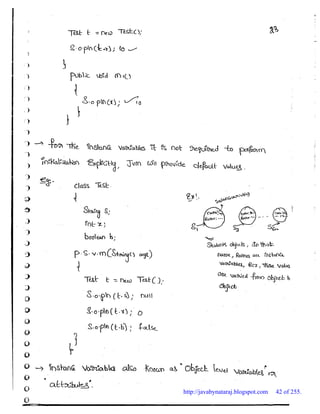 Test t = new Test();
S.o.pln(t.x); 10
}
public void m1()
{
S.o.pln(x); 10
}
}
→ for the instance variables it is not required to perform
initialization Explicitly, Jvm will provide default values.
Eg:-
class Test
{
String s;
int x;
boolean b;
p.s.v.m(String[] args)
{
Test t = new Test();
S.o.pln(t.s); null
S.o.pln(t.x); 0
S.o.pln(t.b); false
}
}
Ex:-
S1
S2
S60
Student objects, so that
name, Rollno are instance
variables, bcz, these value
are varied from object to
object
→ instance variables also known as "object level variables" or
"attributes".
http://javabynataraj.blogspot.com 42 of 255.